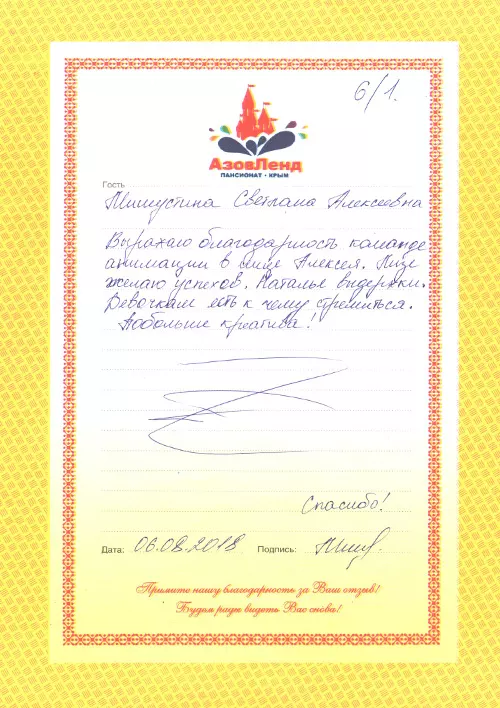 6/1.
АзовЛенд
ПАНСИОНАТ • КРЫМ
Гость
Мишустина Светлана Алексеевна
Выражаю благодарность команде
анимации в лице Алексея. Лизе
желаю успехов. Наталье выдержки.
Девочкам есть к чему стремиться.
Побольше креатива!
Спасибо!
Дата: 06.08.2018 Подпись:
Примите нашу благодарность за Ваш отзыв!
Будем рады видеть Вас снова!